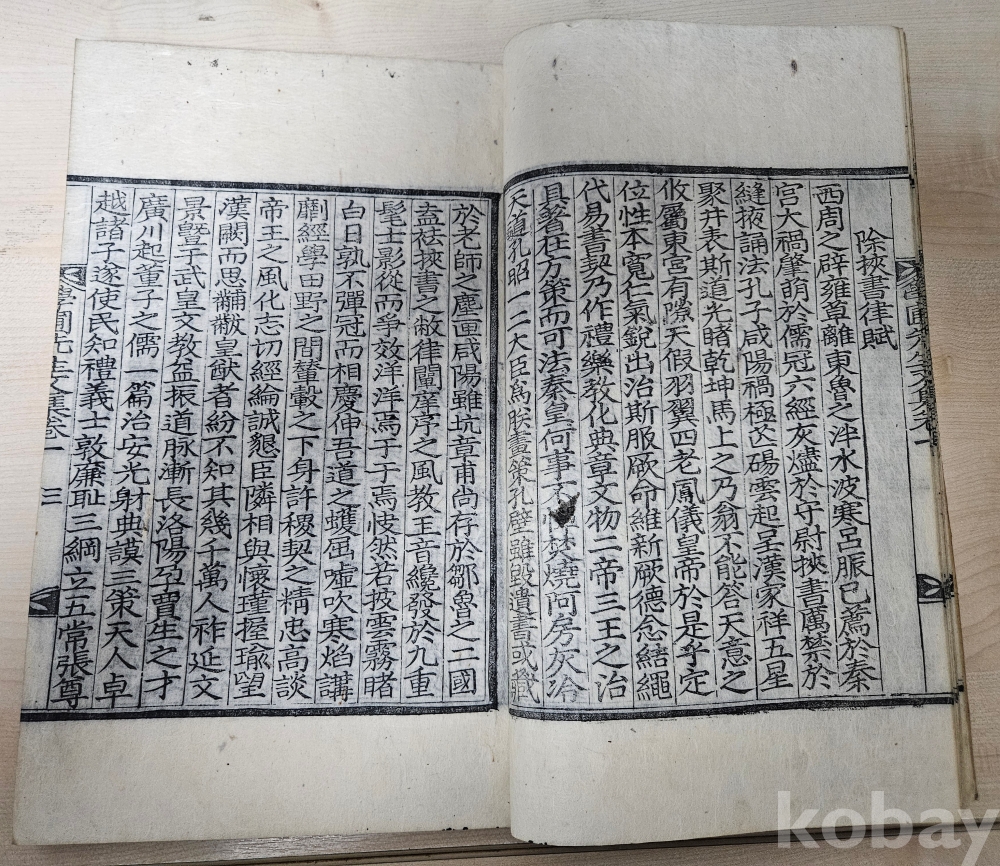 除挾書律賦
西周之辟雍草離東魯之泮水波寒呂脈已薦於秦
宮大禍肇萌於儒冠六經灰燼於守尉挾書厲禁於
縫掖誦法孔子咸陽禍極芒碭雲起呈漢家祥五星
聚井表斯道光睹乾坤馬上之乃翁不能答天意之
攸屬東宮有隙天假羽翼四老鳳儀皇帝於是乎定
位性本寬仁氣銳出治斯服厥命維新厥德念結繩
代易書契乃作禮樂敎化典章文物二帝三王之治
具著在方策而可法秦皇何事不焚燒阿房灰冷
天道孔昭一二大臣爲朕畫策孔壁雖毁遺書或藏
於老師之塵匣咸陽雖坑章甫尚存於鄒魯之二國
盍祛挾書之敝律闡庠序之風教王音纔發於九重
髦士影從而爭效洋洋焉于于焉怳然若披雲霧睹
白日孰不彈冠而相慶伸吾道之蠖屈噓吹寒焰講
劘經學田野之間輦轂之下身許稷契之精忠高談
帝王之風化志切經綸誠懇臣隣相與懷瑾握瑜望
漢闕而思黼黻皇猷者紛不知其幾千萬人祚延文
景曁于武皇文教亟振道脉漸長洛陽召賈生之才
廣川起董子之儒一篇治安光射典謨三策天人卓
越諸子遂使民知禮義士敦廉恥三綱立五常張尊
圃先生文集卷一
三
kobay